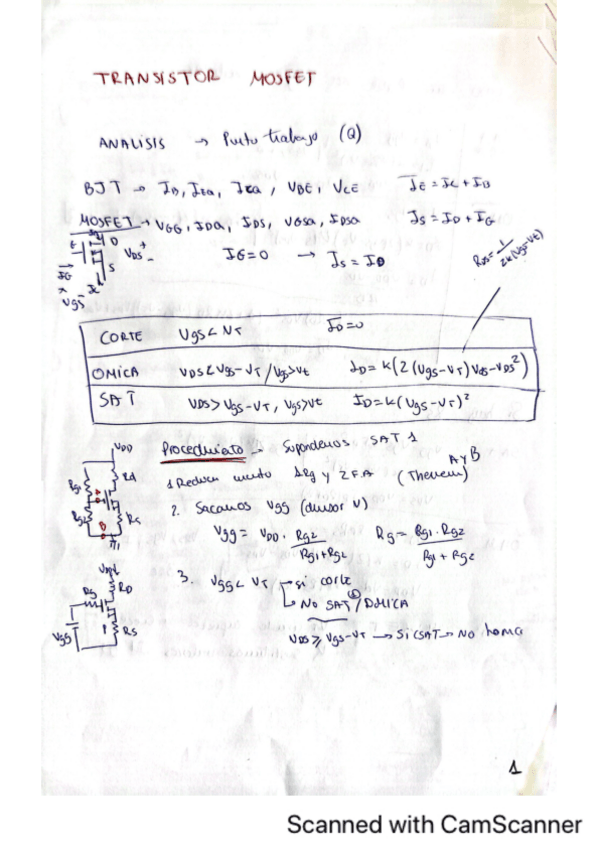 TRANSISTOR MOSFET
ANALISIS → Punto trabajo (Q)
BJT → IB, IEQ, ICQ, VBE, VCE IE = IC + IB
MOSFET → VGG, IDQ, IDS, VGSQ, IDSQ IS = ID + IG
IG = 0 → IS = ID
D
VDS
+
-
S
IG
Vgs
RDS = 1/2k(Vgs-Vt)
CORTE Vgs < VT ID = 0
OMICA VDS < Vgs - VT / Vgs > Vt ID = k(2(Vgs - VT)VDS - VDS²)
SAT VDS > Vgs - VT, Vgs > Vt ID = k(Vgs - VT)²
Procedimiento → Suponemos SAT
1. Reducir 1Rg y 2 F.A (Thevenin) A y B
2. Sacamos Vgg (divisor V)
Vgg = VDD · Rg2 / Rg1 + Rg2 Rg = Rg1 · Rg2 / Rg1 + Rg2
3. Vgg < VT si corte
No SAT / OMICA
VDS ≥ Vgs - VT → Si (SAT → NO
VDD
Rd
Rg1
A
Rg2
B
Rs
RD
Rg
Vgg
RS
1
Scanned with CamScanner